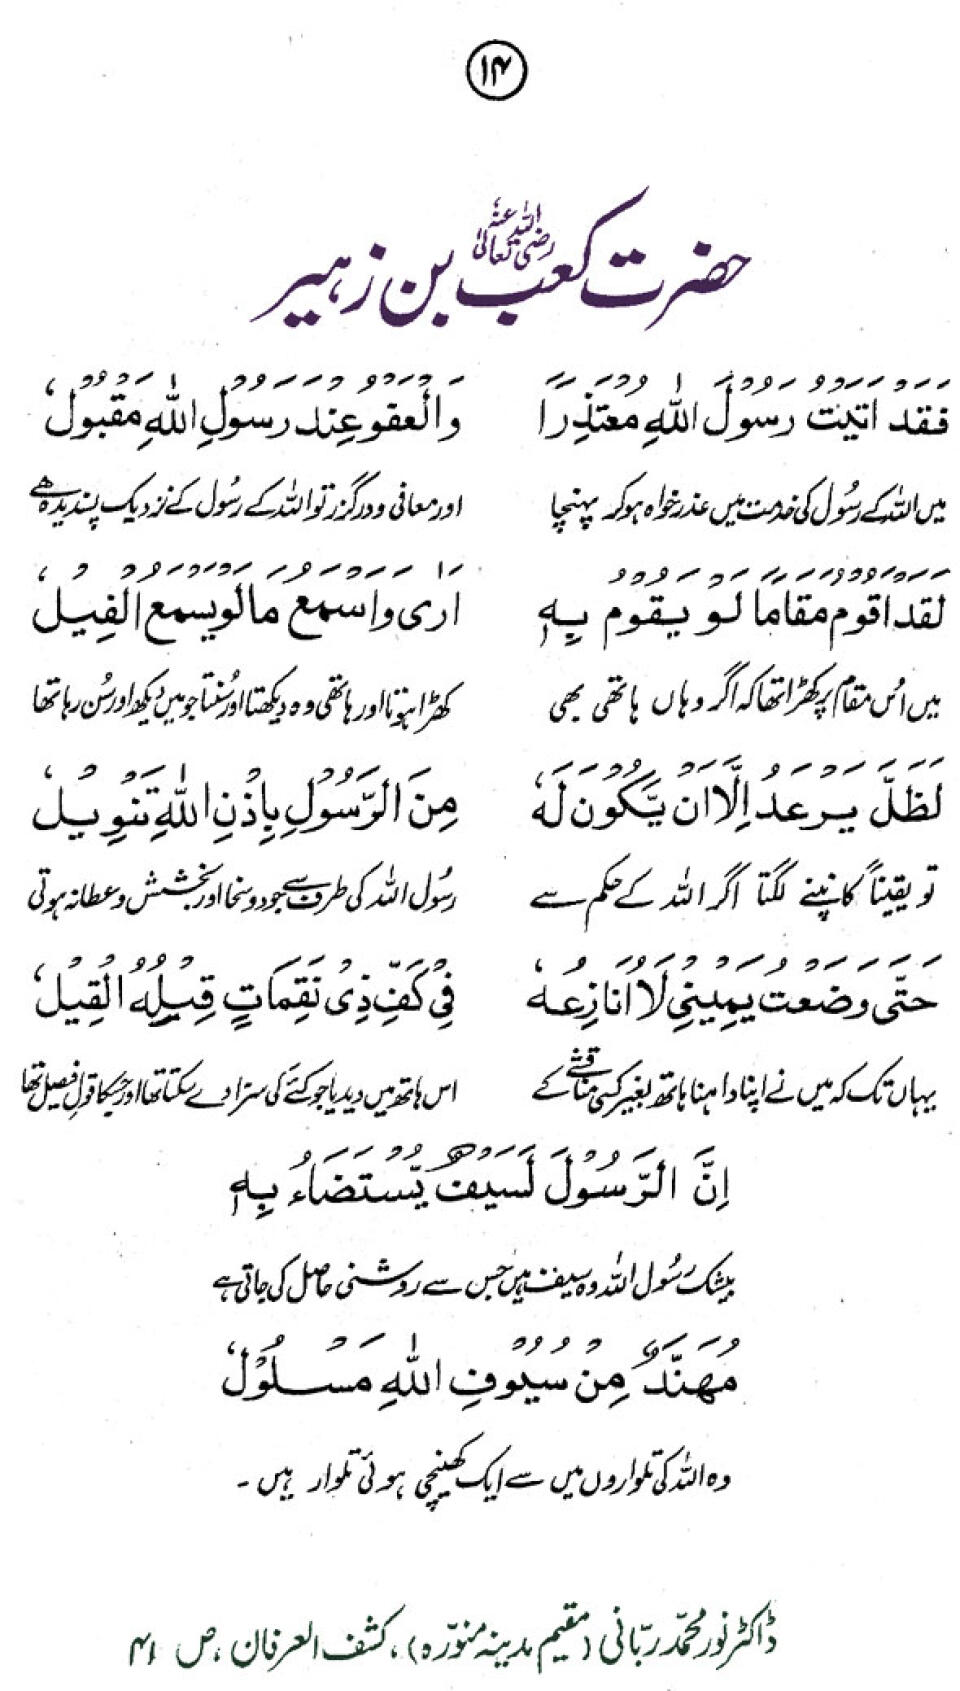 ۱۴
حضرت کعب بن زہیر رضی اللہ تعالیٰ عنہ
فَقَدْ اَتَيْتُ رَسُوْلَ اللّٰهِ مُعْتَذِرًا وَالْعَفْوُ عِنْدَ رَسُوْلِ اللّٰهِ مَقْبُوْلُ
میں اللہ کے رسُول کی خدمت میں عذر خواہ ہو کر پہنچا اور معافی و درگزر تو اللہ کے رسُول کے نزدیک پسندیدہ ہے
لَقَدْ اَقُوْمُ مَقَامًا لَوْ يَقُوْمُ بِهٖ اَرٰى وَاَسْمَعُ مَا لَوْ يَسْمَعُ الْفِيْلُ
میں اُس مقام پر کھڑا تھا کہ اگر وہاں ہاتھی بھی کھڑا ہوتا اور ہاتھی وہ دیکھتا اور سُنتا جو میں دیکھ اور سُن رہا تھا
لَظَلَّ يَرْعَدُ اِلَّا اَنْ يَّكُوْنَ لَهٗ مِنَ الرَّسُوْلِ بِاِذْنِ اللّٰهِ تَنْوِيْلُ
تو یقیناً کانپنے لگتا اگر اللہ کے حکم سے رسُول اللہ کی طرف سے جود و سخا اور بخشش و عطا نہ ہوتی
حَتّٰى وَضَعْتُ يَمِيْنِيْ لَا اُنَازِعُهٗ فِيْ كَفِّ ذِيْ نَقِمَاتٍ قِيْلُهُ الْقِيْلُ
یہاں تک کہ میں نے اپنا داہنا ہاتھ بغیر کسی مناقشے کے اس ہاتھ میں دیدیا جو کئے کی سزا دے سکتا تھا اور جسکا قول فیصل تھا
اِنَّ الرَّسُوْلَ لَسَيْفٌ يُّسْتَضَاءُ بِهٖ
بیشک رسُول اللہ وہ سیف ہیں جس سے روشنی حاصل کی جاتی ہے
مُهَنَّدٌ مِنْ سُيُوْفِ اللّٰهِ مَسْلُوْلُ
وہ اللہ کی تلواروں میں سے ایک کھینچی ہوئی تلوار ہیں۔
ڈاکٹر نور محمد ربّانی (مقیم مدینہ منوّرہ)، کشف العرفان، ص ۴۱